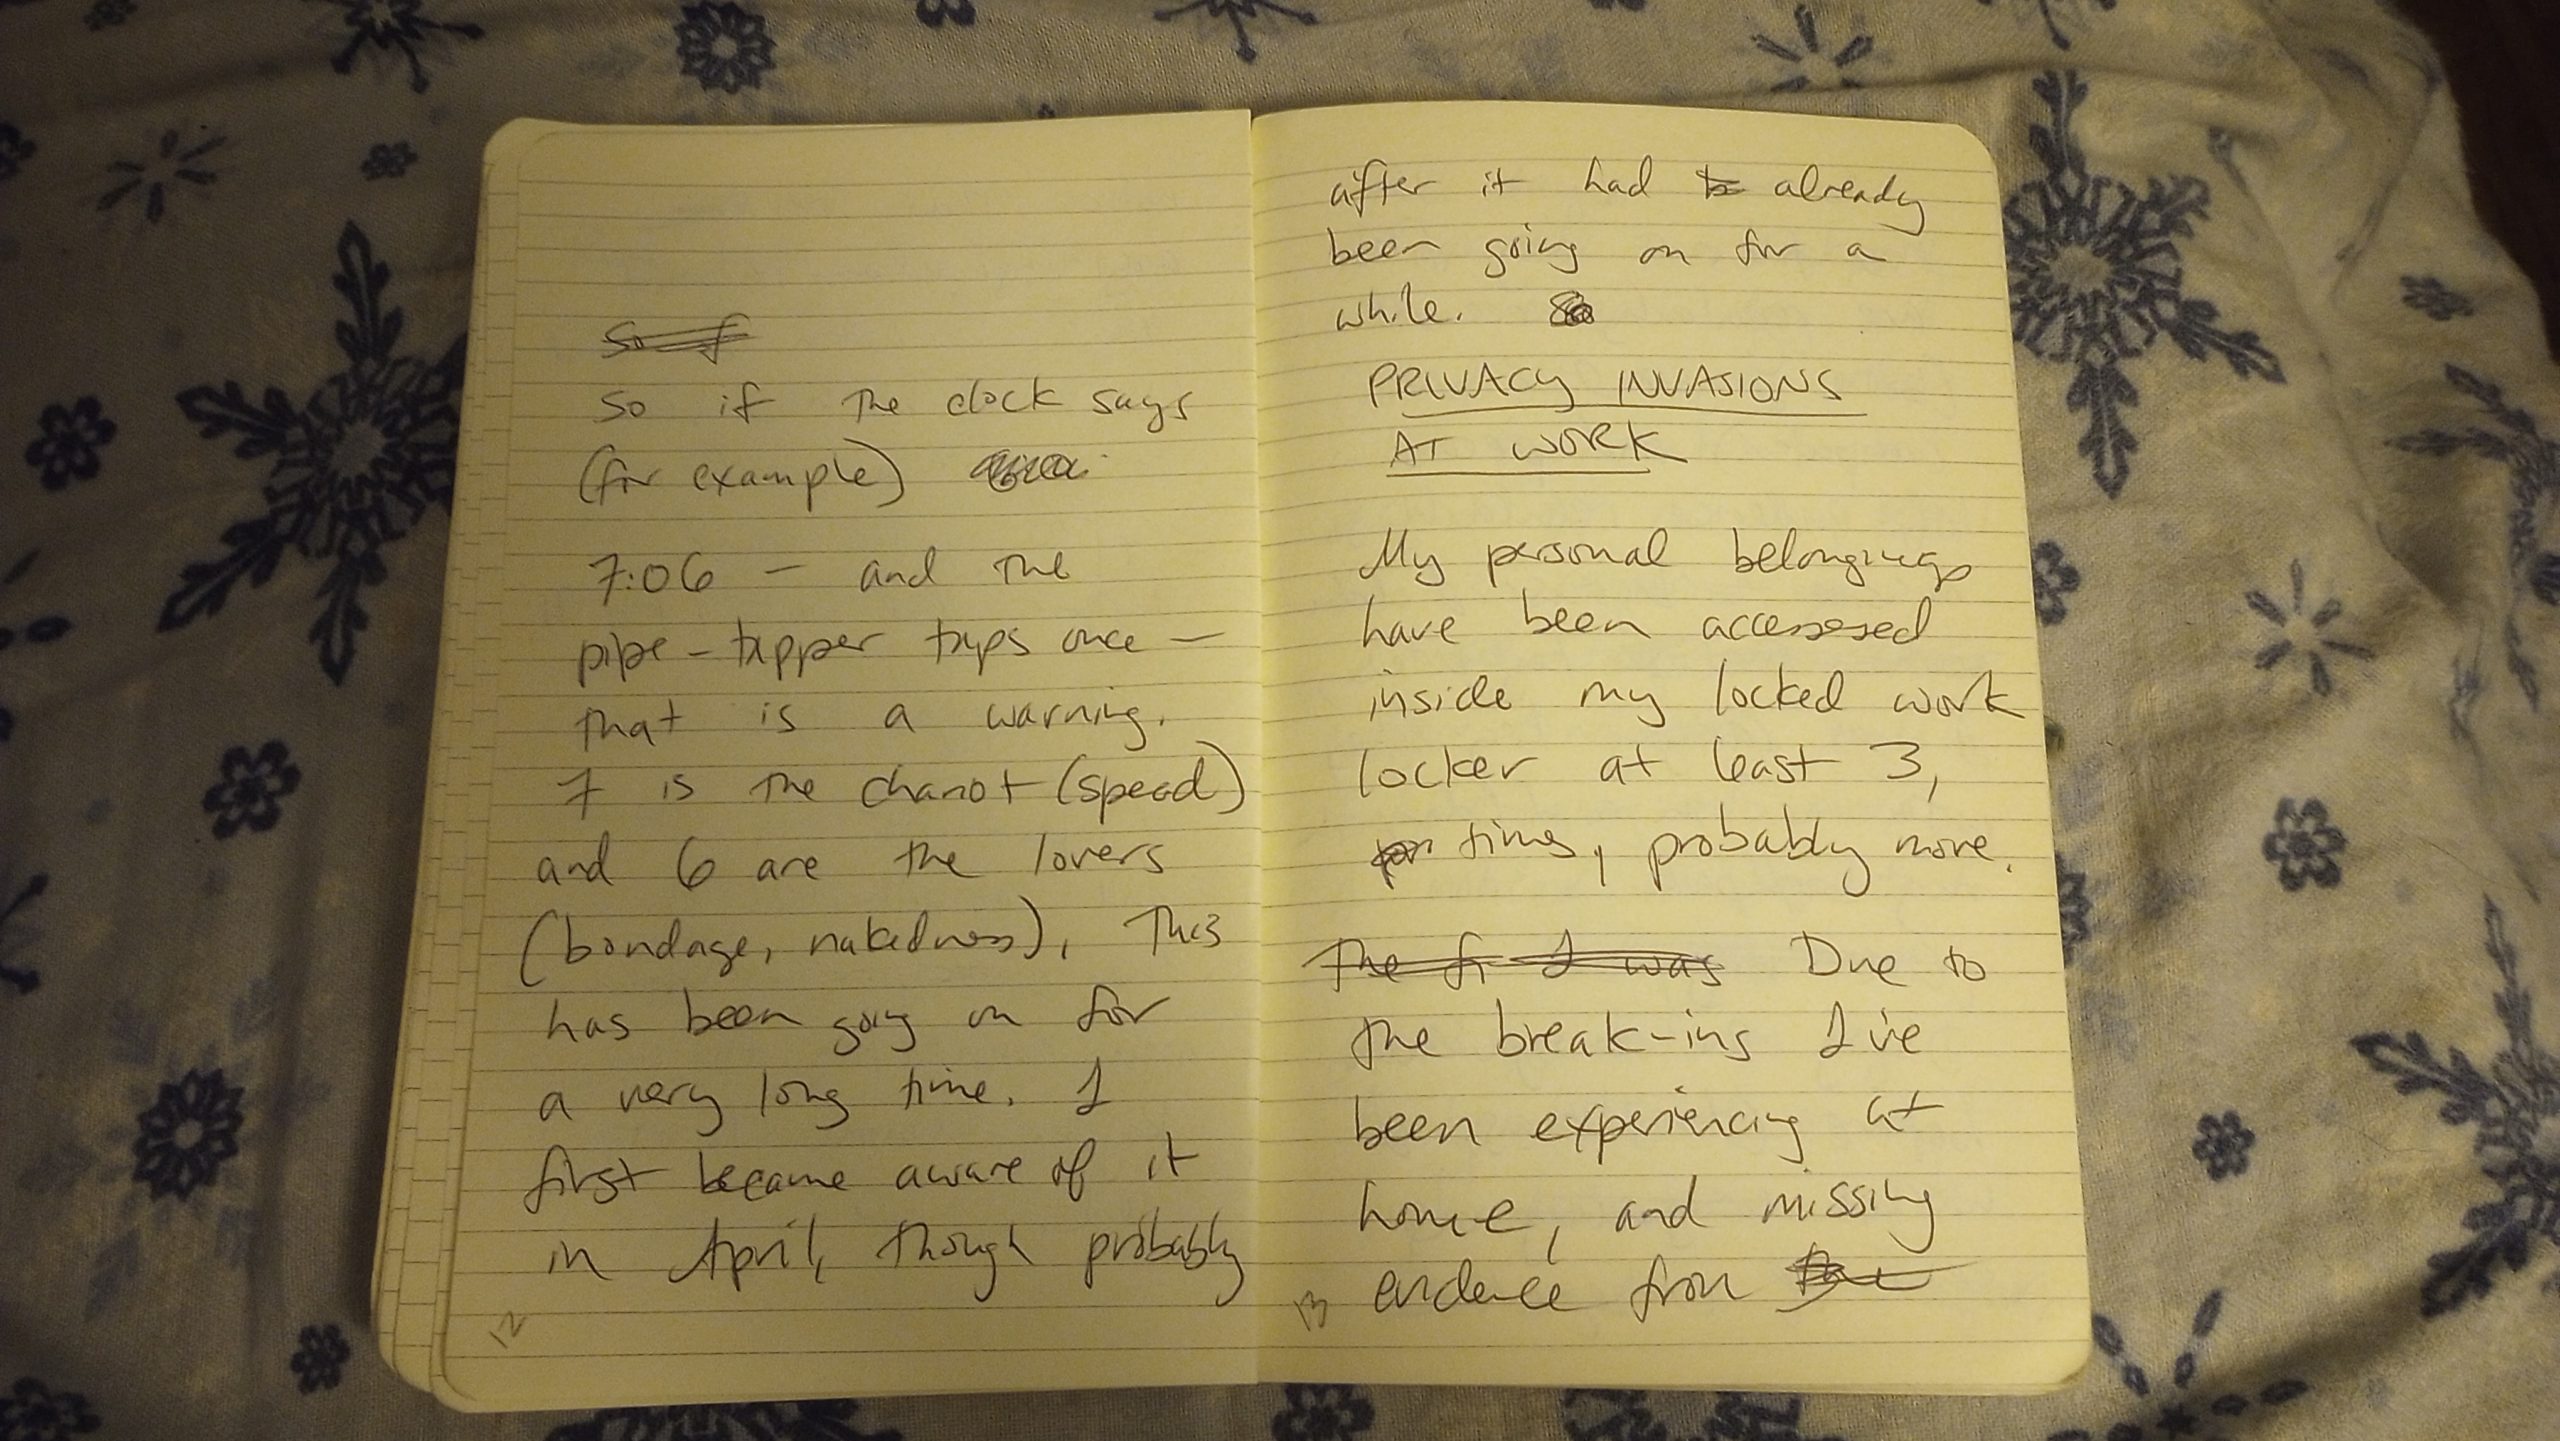 so f
so if the clock says
(for example)
7:06 — and the
pipe-tapper taps once —
that is a warning.
7 is the chariot (speed)
and 6 are the lovers
(bondage, nakedness), This
has been going on for
a very long time. I
first became aware of it
in April, though probably
12
after it had already
been going on for a
while.
PRIVACY INVASIONS
AT WORK
My personal belongings
have been accessed
inside my locked work
locker at least 3,
times, probably more.
The fi I was Due to
the break-ins I've
been experiencing at
home, and missing
evidence from
13